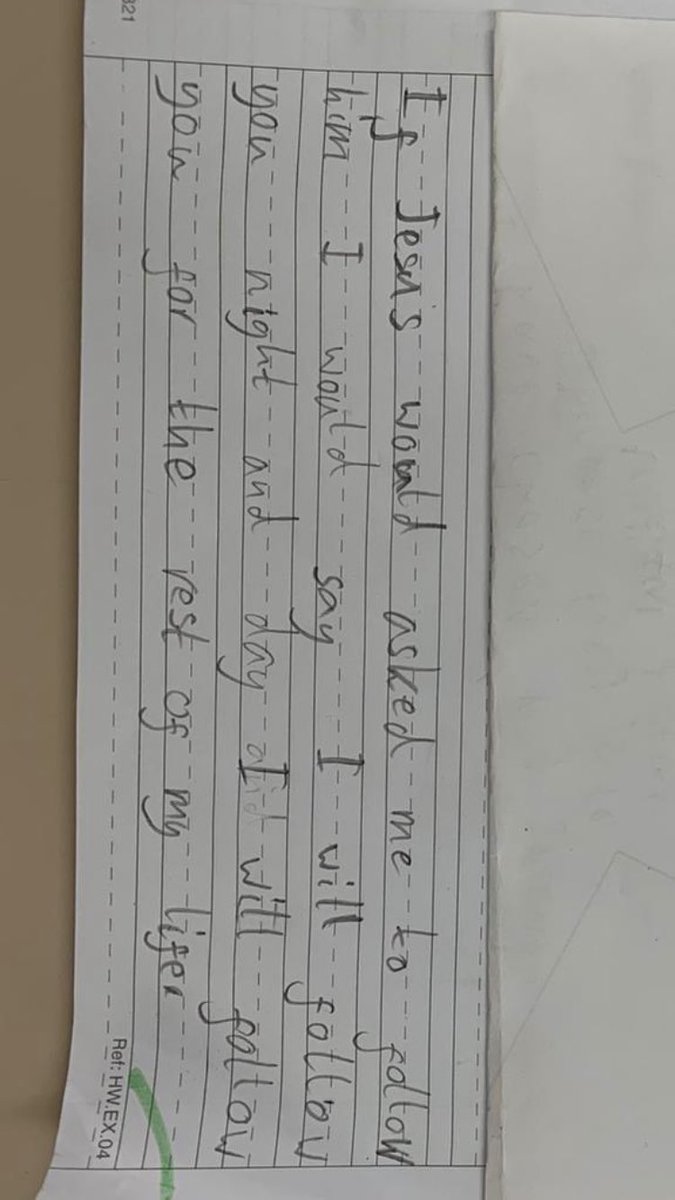 If Jesus would asked me to follow
him I would say I will follow
you night and day I will follow
you for the rest of my lifer
Ref: HW.EX.04
321